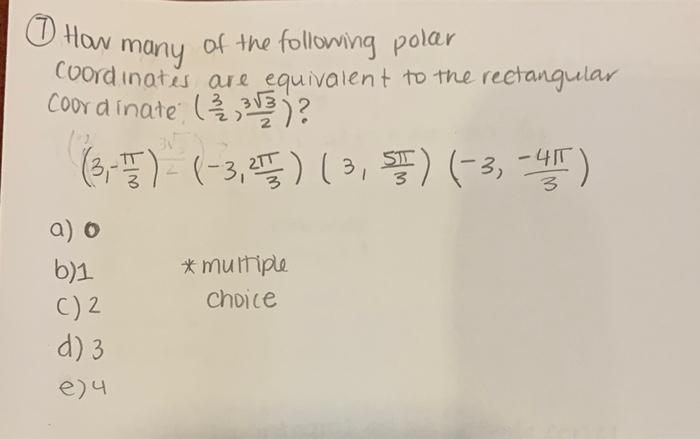 ⑦ How many of the following polar
coordinates are equivalent to the rectangular
coordinate (3/2, 3√3/2)?
(3, -π/3) (-3, 2π/3) (3, 5π/3) (-3, -4π/3)
a) 0
b) 1
c) 2
d) 3
e) 4
* multiple
choice